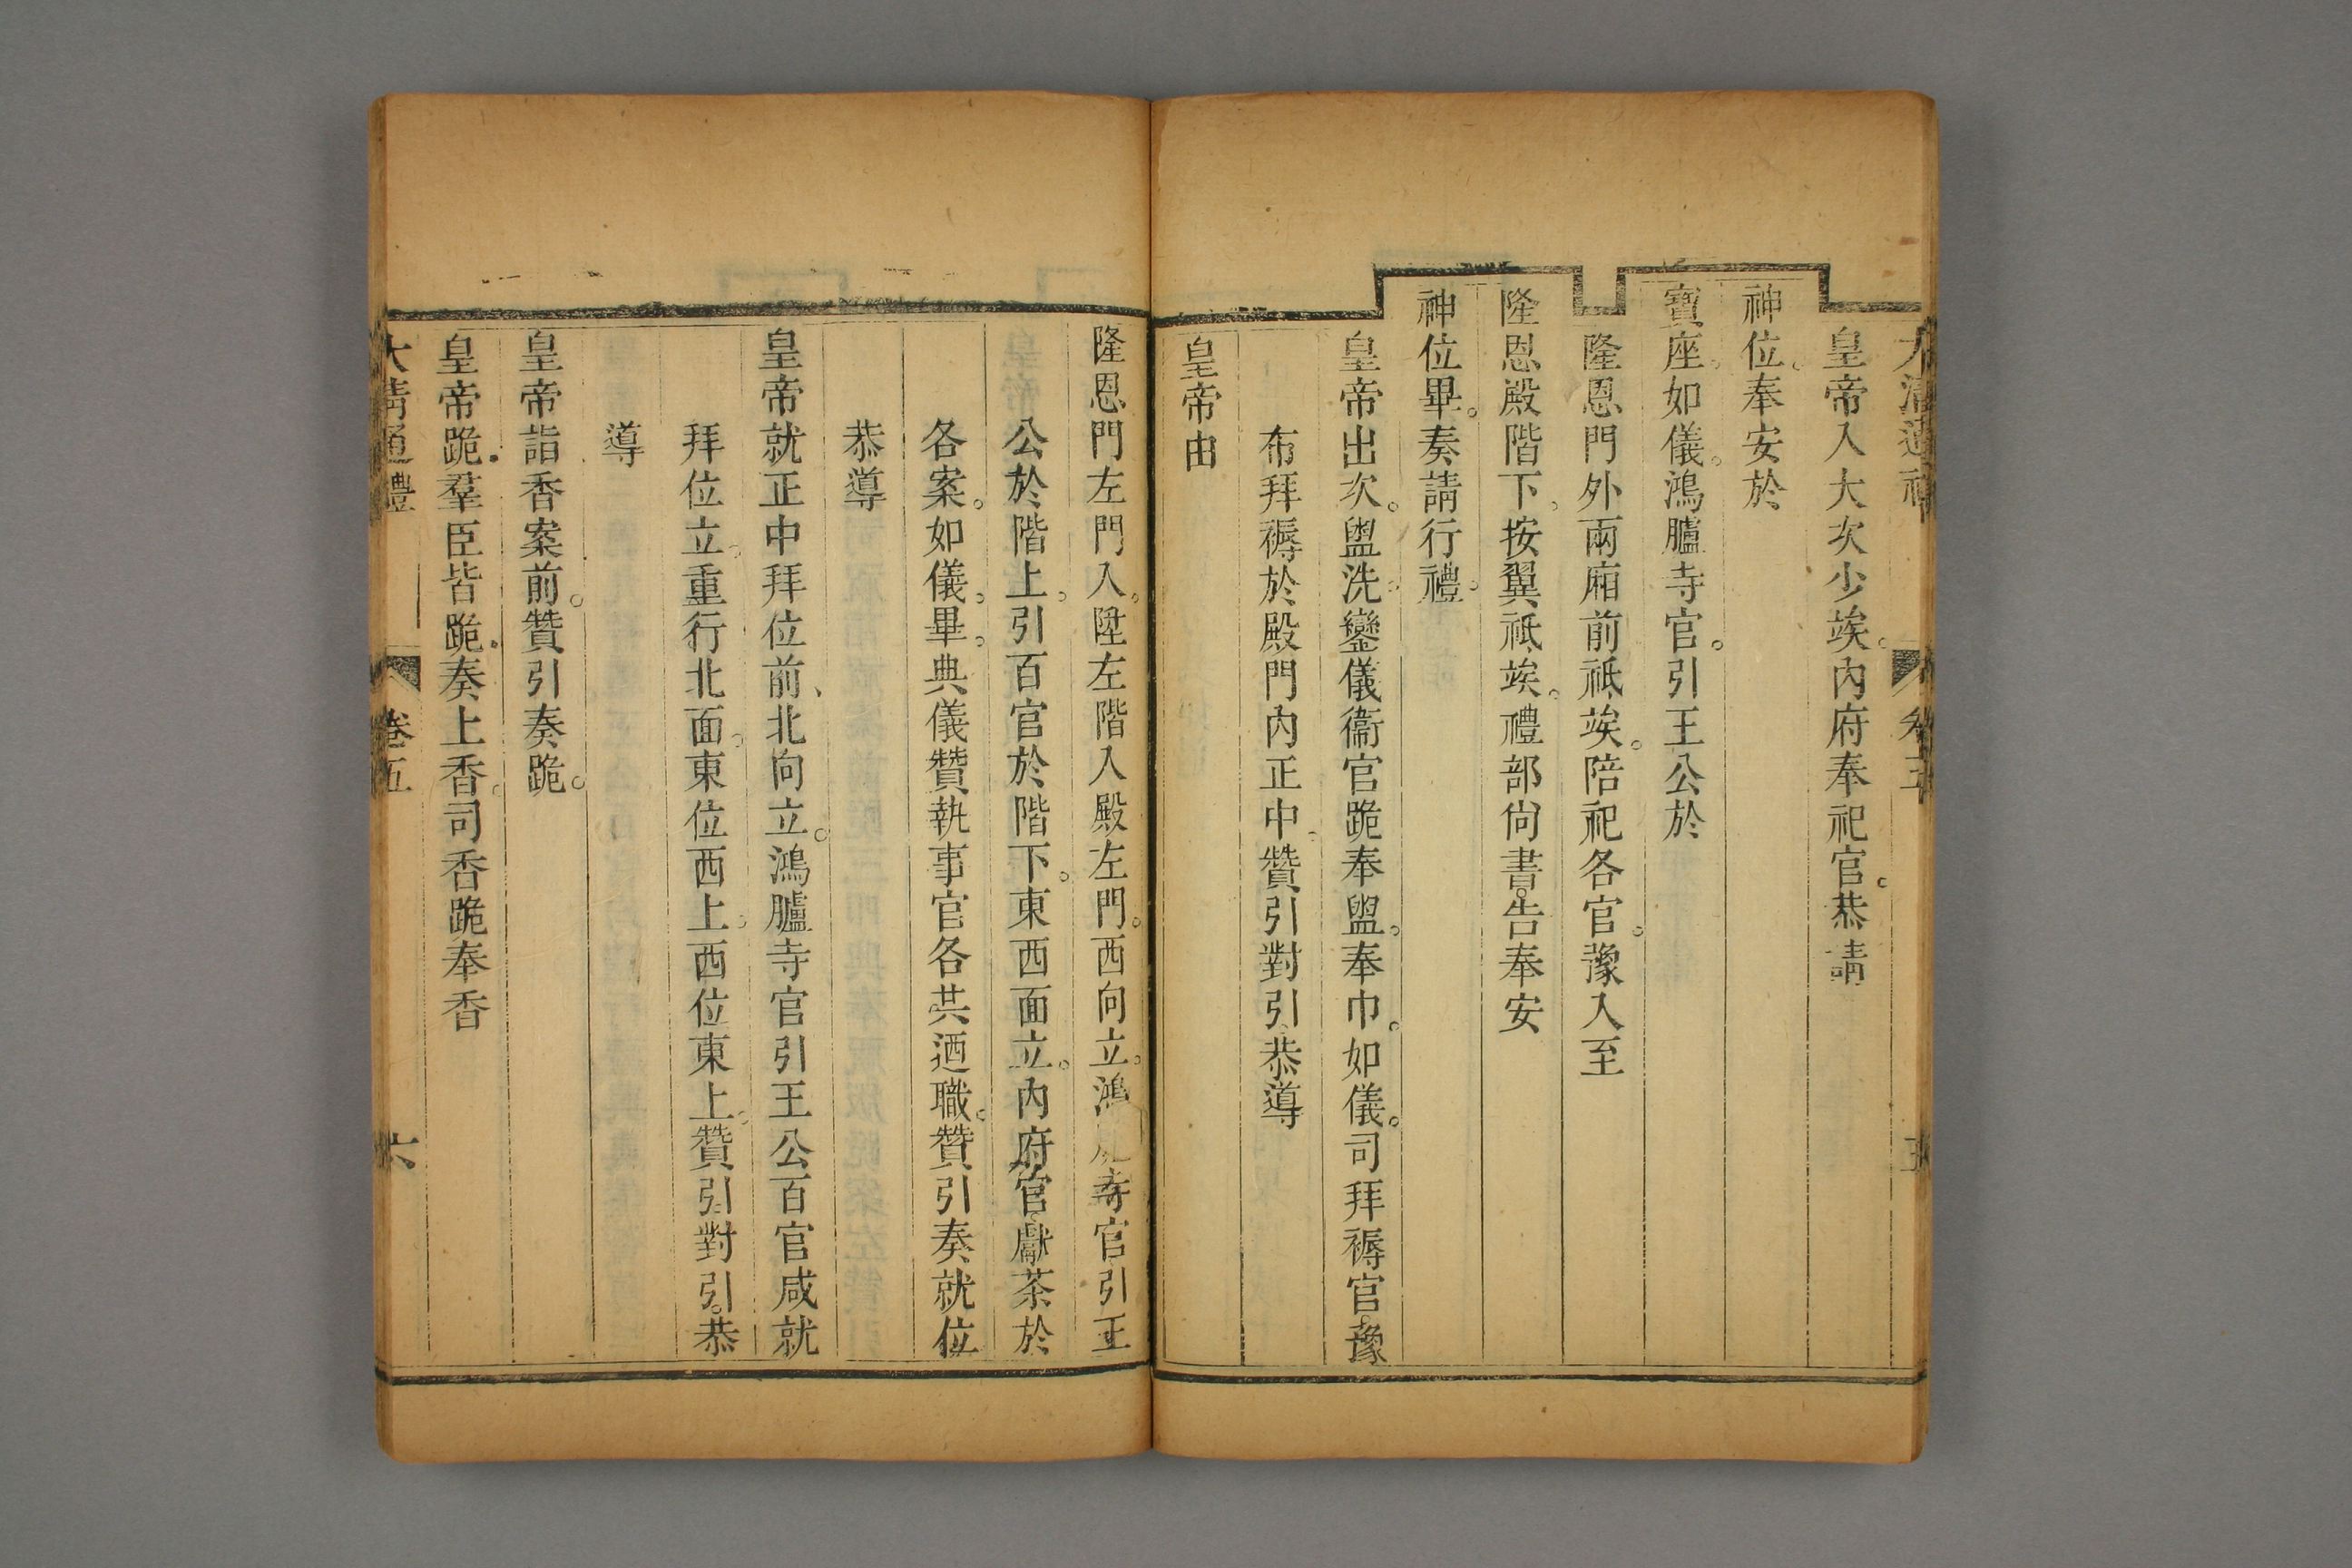 大清通禮 卷五 五
皇帝入大次少竢。內府奉祀官。恭請
神位。奉安於
寶座。如儀。鴻臚寺官。引王公於
隆恩門外兩廂前祗竢。陪祀各官。豫入至
隆恩殿階下。按翼祗竢。禮部尚書。告奉安
神位畢。奏請行禮。
皇帝出次。盥洗。鑾儀衞官跪奉盥。奉巾。如儀。司拜褥官。豫
布拜褥於殿門內正中。贊引對引恭導
皇帝由
隆恩門左門入。陞左階入殿左門。西向立。鴻臚寺官引王
公於階上。引百官於階下。東西面立。內府官。獻茶於
各案。如儀。畢。典儀贊執事官各共迺職。贊引奏就位
恭導
皇帝就正中拜位前、北向立。鴻臚寺官引王公百官咸就
拜位立。重行北面。東位西上。西位東上。贊引對引。恭
導
皇帝詣香案前。贊引奏跪。
皇帝跪。羣臣皆跪。奏上香。司香跪奉香
大清通禮 卷五 六